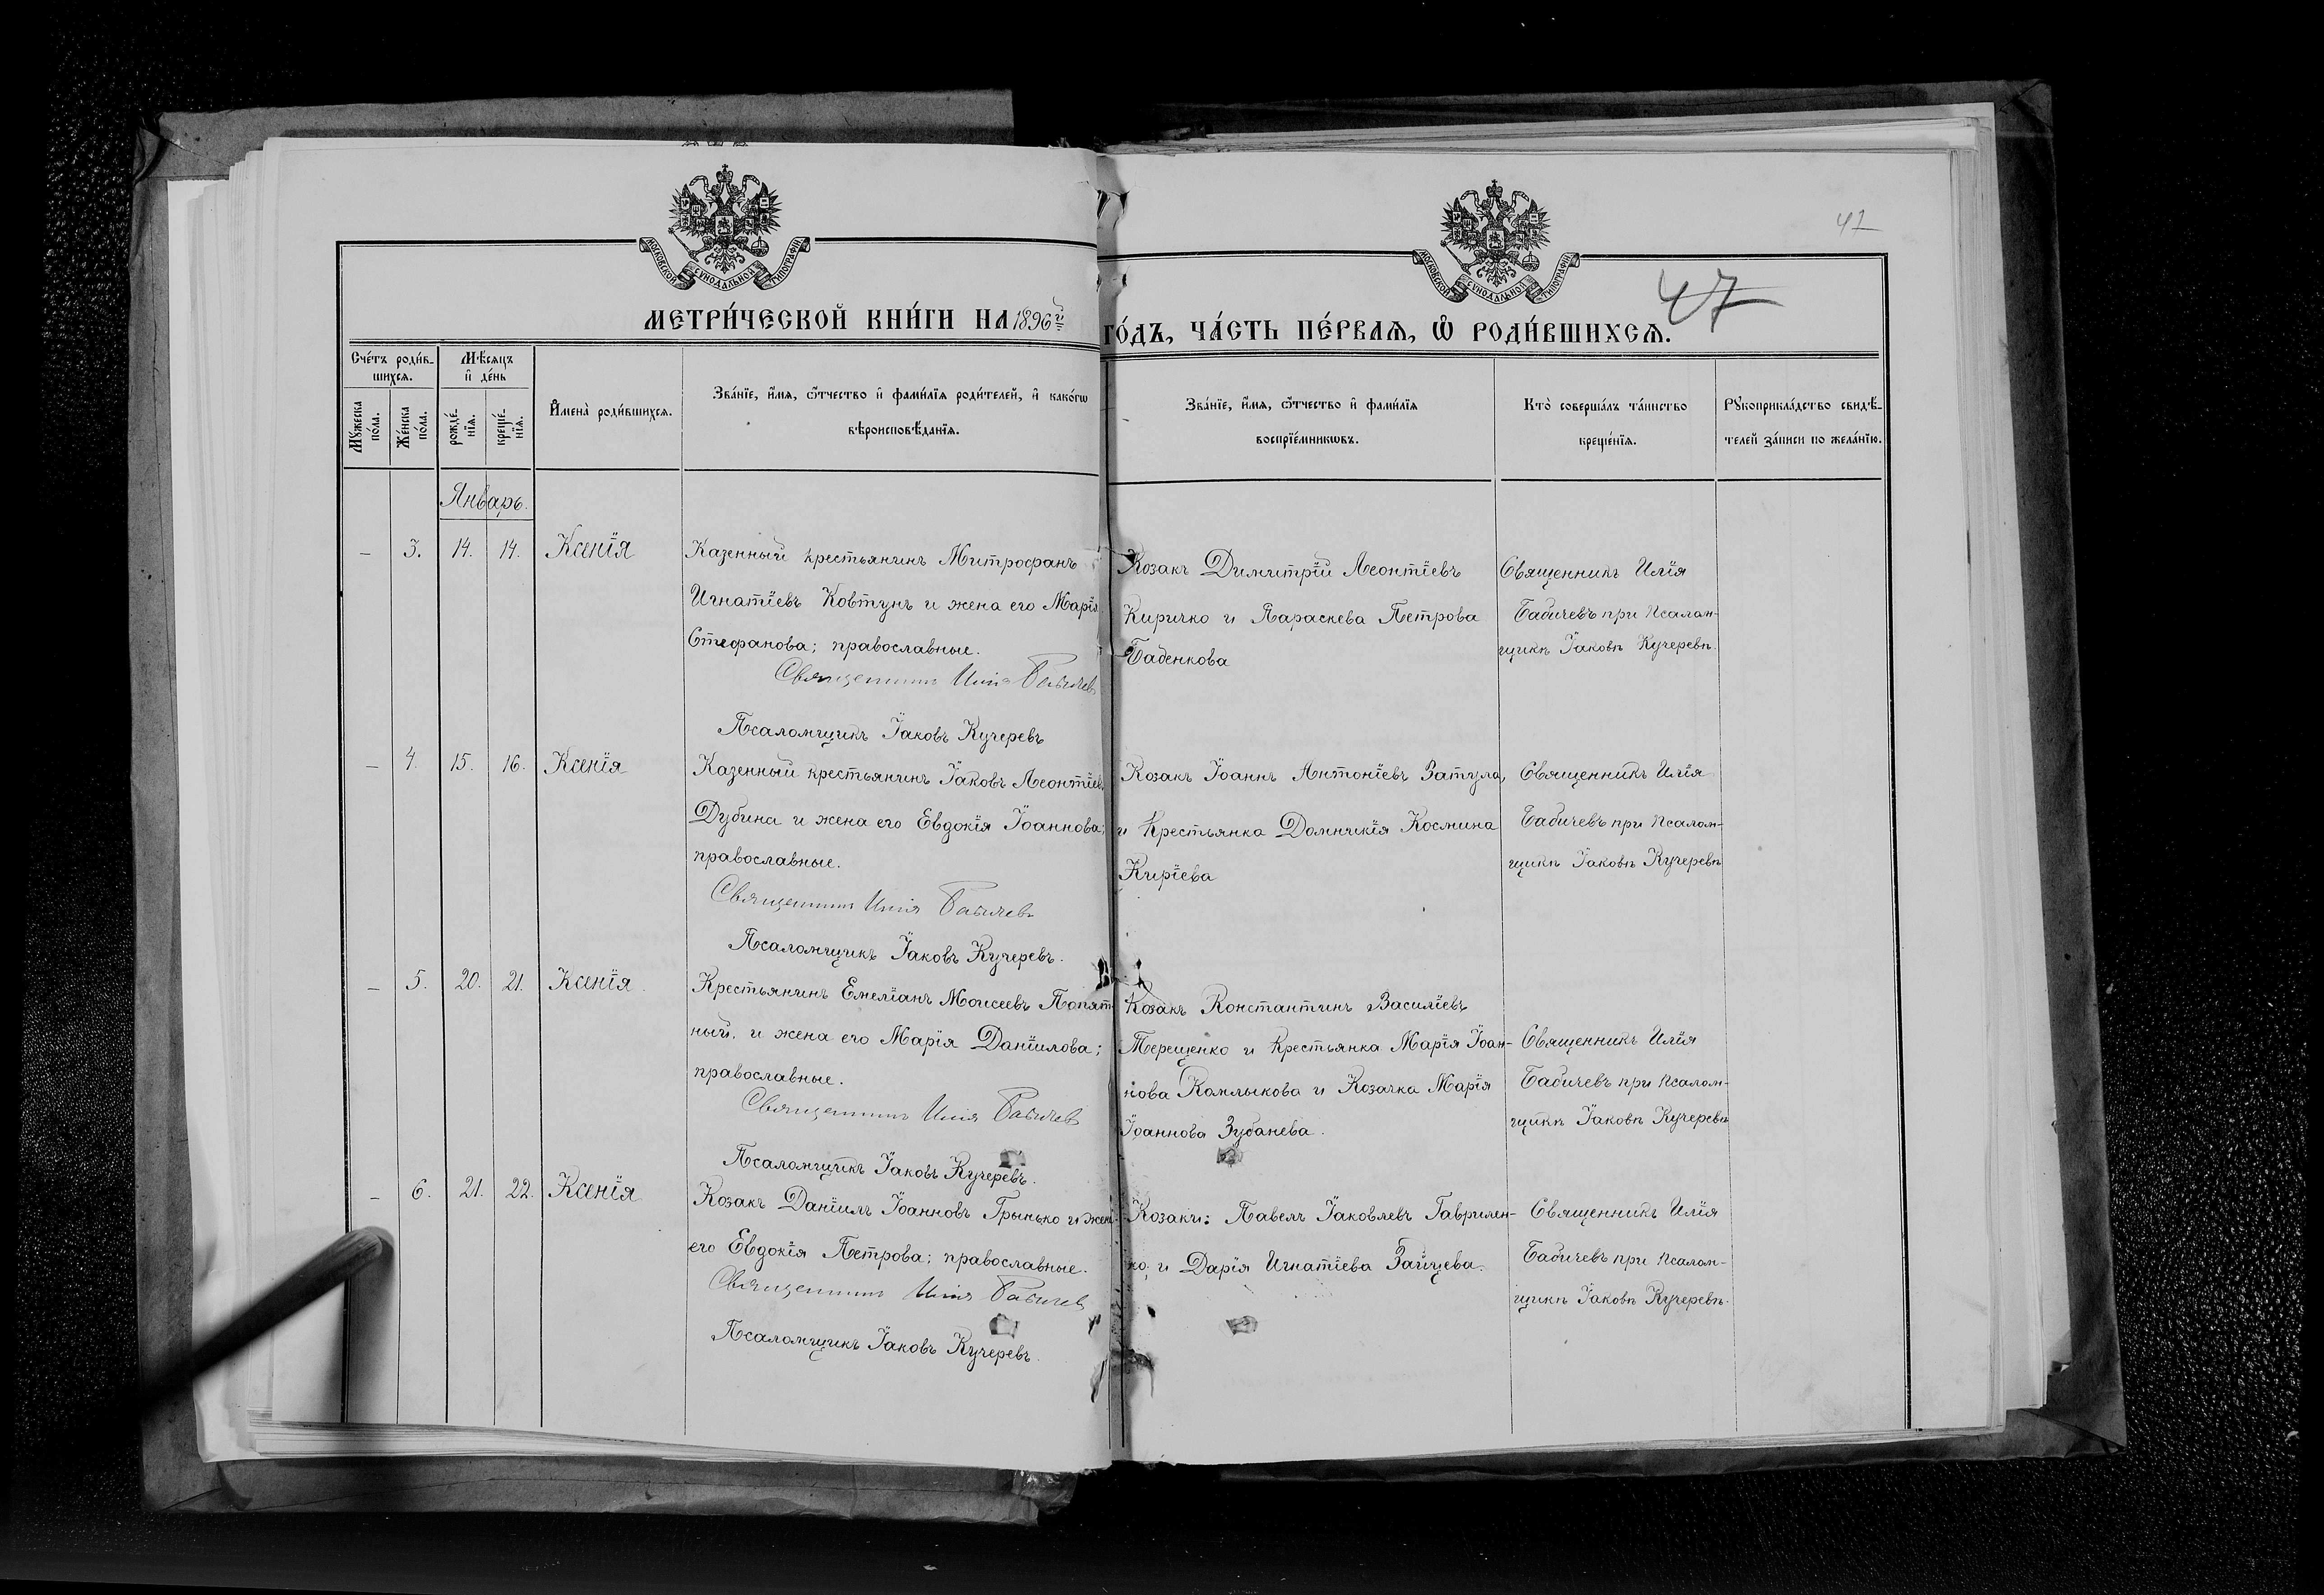 МОСКОВСКОЙ СѴНОДАЛЬНОЙ ТИПОГРАФІИ
МОСКОВСКОЙ СѴНОДАЛЬНОЙ ТИПОГРАФІИ
47
МЕТРИ́ЧЕСКОЙ КНИ́ГИ НА 1896й ГО́ДЪ, ЧА́СТЬ ПЕ́РВАѦ, Ѡ҆ РОДИ́ВШИХСѦ.
Сче́тъ роди́в-
шихсѧ.
Мѣ́сѧцъ
и҆ де́нь
Мꙋ́жеска
по́ла.
Же́нска
по́ла.
рожде́-
нїѧ.
креще́-
нїѧ.
И҆мена̀ роди́вшихсѧ.
Зва́нїе, и҆́мѧ, ѻ҆́тчество и҆ фами́лїѧ роди́телей, и҆ како́гѡ
вѣроисповѣ́данїѧ.
Зва́нїе, и҆́мѧ, ѻ҆́тчество и҆ фами́лїѧ
воспрїе́мникѡвъ.
Кто̀ соверша́лъ та́инство
креще́нїѧ.
Рꙋкоприкла́дство свидѣ́-
телей за́писи по жела́нїю.
Январь.
– 3. 14. 14. Ксенія
Казенный крестьянинъ Митрофанъ
Игнатіевъ Ковтунъ и жена его Марія
Стефанова; православные.
Священникъ Илія Бабичевъ
Псаломщикъ Іаковъ Кучеревъ
Козакъ Димитрій Леонтіевъ
Киричко и Параскева Петрова
Бабенкова
Священникъ Илія
Бабичевъ при псалом-
щикѣ Іаковѣ Кучеревѣ.
– 4. 15. 16. Ксенія
Казенный крестьянинъ Іаковъ Леонтіев
Дубина и жена его Евдокія Іоаннова;
православные.
Священникъ Илія Бабичевъ
Псаломщикъ Іаковъ Кучеревъ.
Козакъ Іоаннъ Антоніевъ Затула,
и Крестьянка Домникія Космина
Киріева
Священникъ Илія
Бабичевъ при псалом-
щикѣ Іаковѣ Кучеревѣ
– 5. 20. 21. Ксенія
Крестьянинъ Емеліанъ Моисеевъ Попят-
ный, и жена его Марія Даніилова;
православные.
Священникъ Илія Бабичевъ
Псаломщикъ Іаковъ Кучеревъ.
Козакъ Константинъ Василіевъ
Терещенко и Крестьянка Марія Іоан-
нова Камлыкова и Козачка Марія
Іоаннова Зубанева.
Священникъ Илія
Бабичевъ при псалом-
щикѣ Іаковѣ Кучеревѣ
– 6. 21. 22. Ксенія
Козакъ Даніилъ Іоанновъ Грынько и жена
его Евдокія Петрова; православные.
Священникъ Илія Бабичевъ
Псаломщикъ Іаковъ Кучеревъ.
Козаки: Павелъ Іаковлевъ Гаврилен-
ко, и Дарія Игнатіева Зайцева.
Священникъ Илія
Бабичевъ при псалом-
щикѣ Іаковѣ Кучеревѣ.